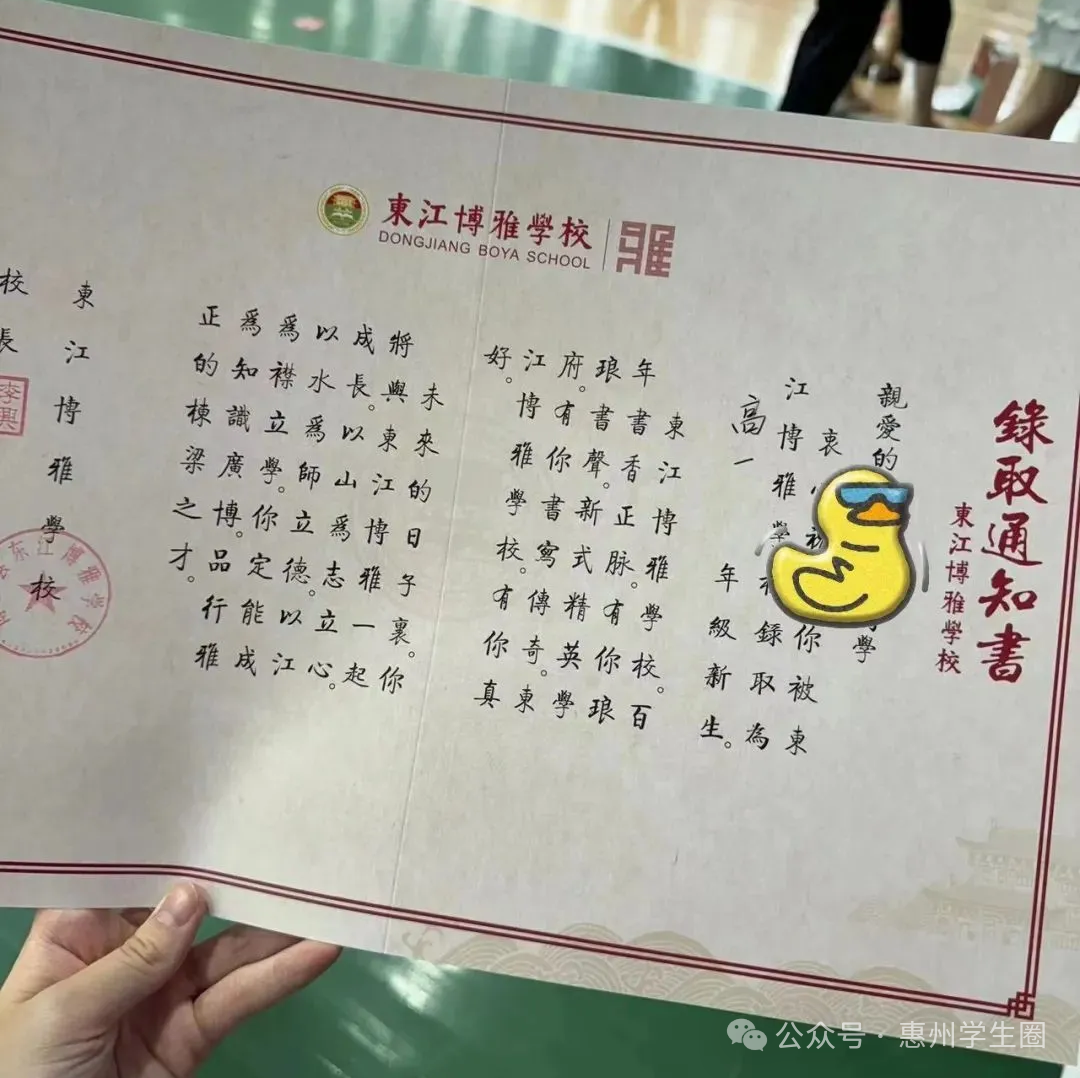 東江博雅學校
DONGJIANG BOYA SCHOOL
雅
錄取通知書
東江博雅學校
親愛的
學
衷你被東
江博雅學錄取為
高一年級新生。
東江博雅學校。百
年書香正脈。有你琅
琅書聲。新式精英學
府。有你書寫傳奇。東
江博雅學校。有你真
好。
未來的日子裏。你
將與東江博雅一起
成長。以山爲志立心。
以水爲師立德。以江
爲襟立學。你定能成
爲知識廣博。品行雅
正的棟梁之才。
東江博雅學校
校長
李興
东江博雅学校
公众号·惠州学生圈